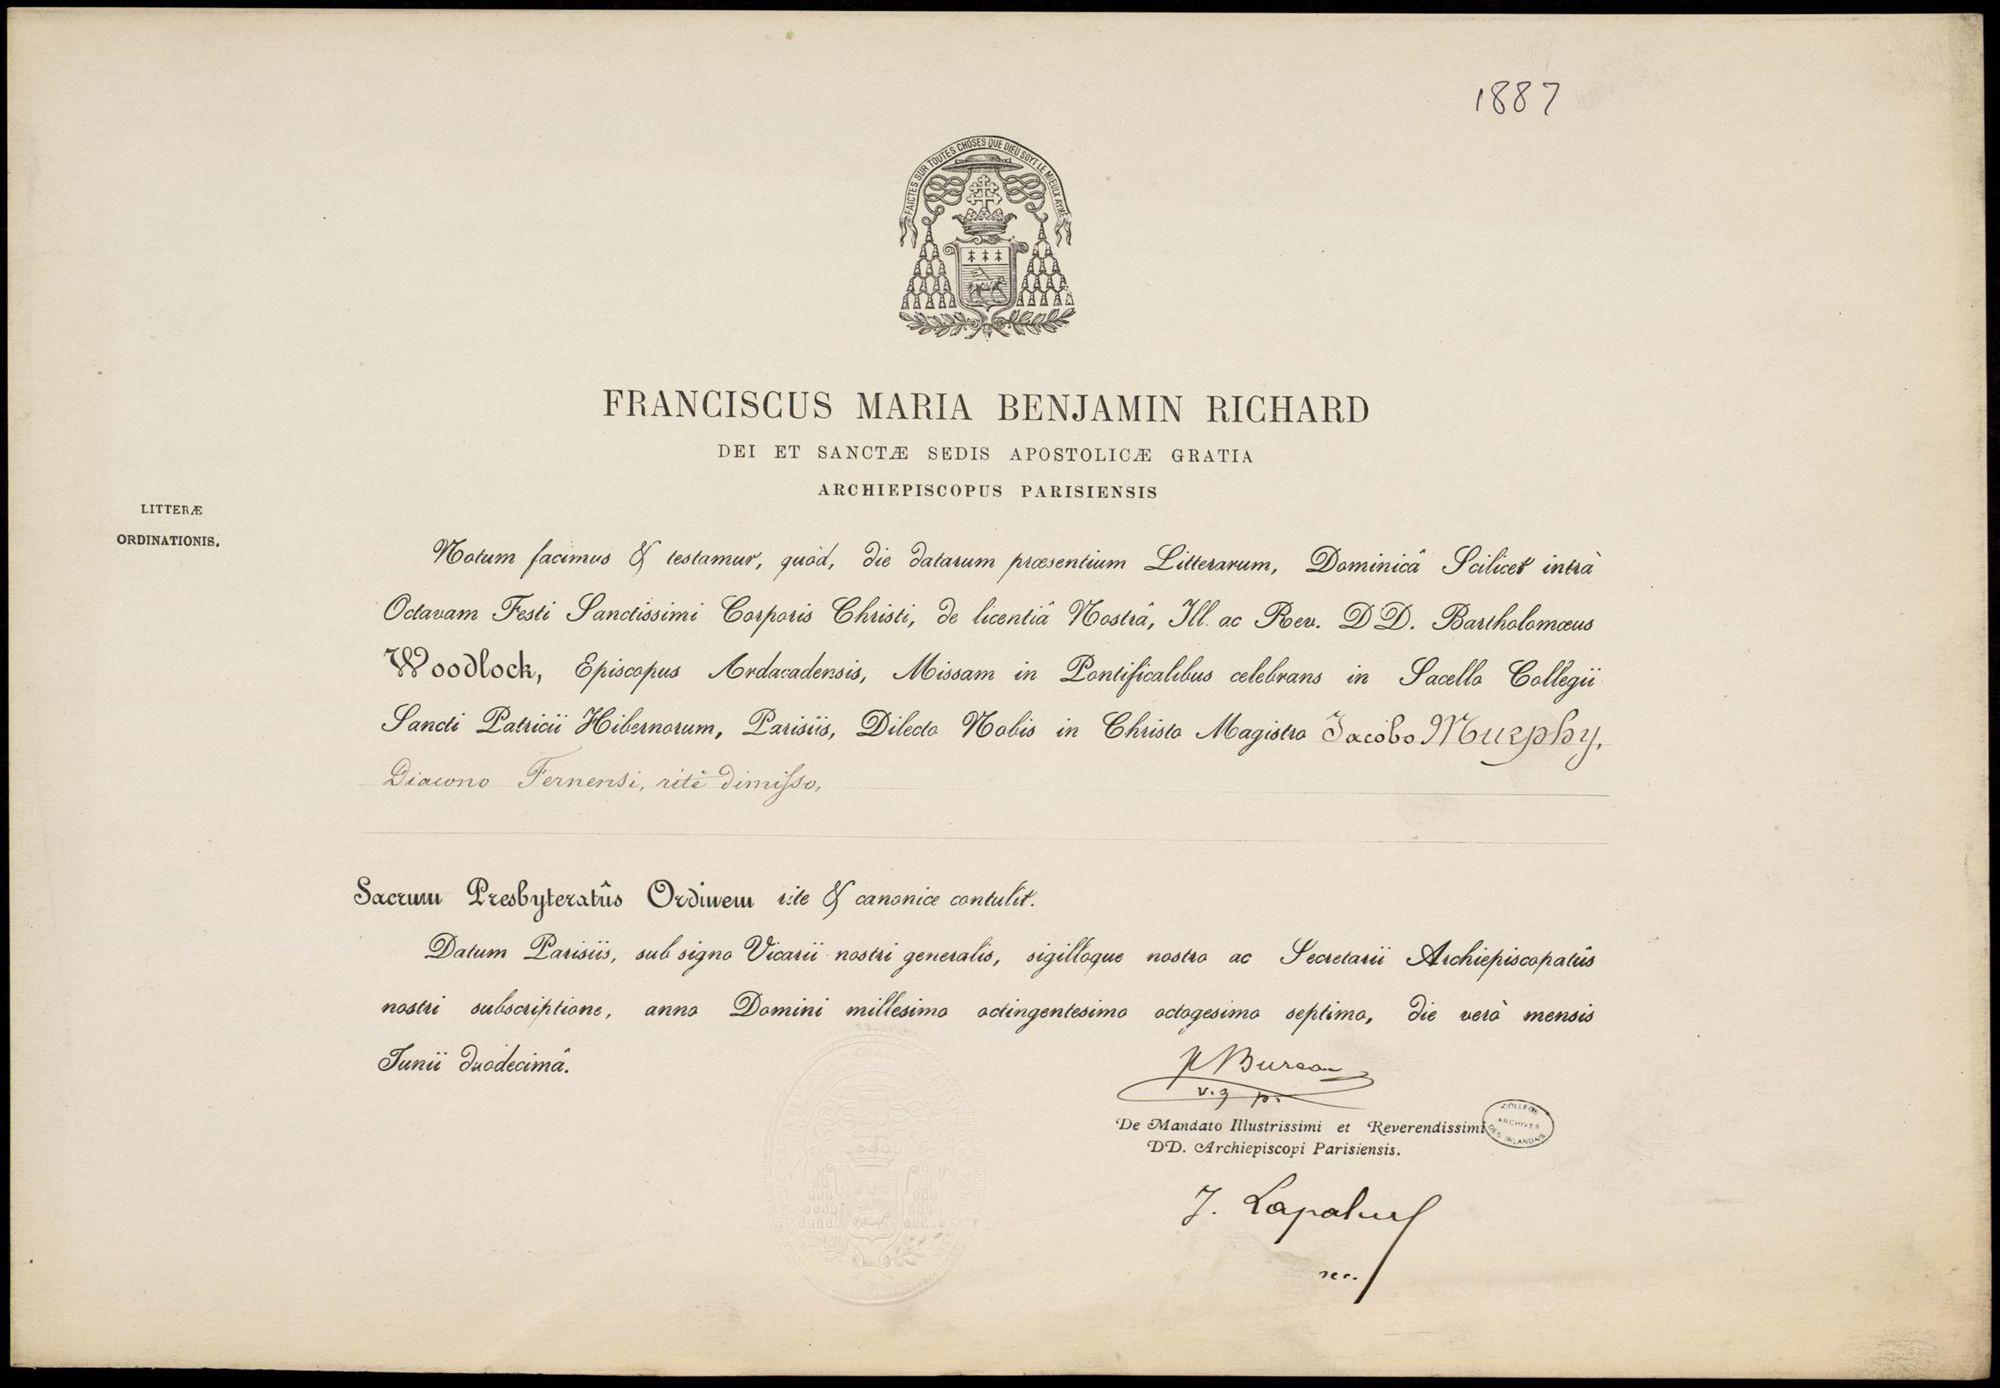 1887
FAICTES SUR TOUTES CHOSES QUE DIEU SOYT LE MIEULX AYMÉ
FRANCISCUS MARIA BENJAMIN RICHARD
DEI ET SANCTÆ SEDIS APOSTOLICÆ GRATIA
ARCHIEPISCOPUS PARISIENSIS
LITTERÆ
ORDINATIONIS.
Notum facimus & testamur, quòd, die datarum præsentium Litterarum, Dominicâ Scilicet intrà
Octavam Festi Sanctissimi Corporis Christi, de licentiâ Nostrâ, Ill. ac Rev. DD. Bartholomœus
Woodlock, Episcopus Ardacadensis, Missam in Pontificalibus celebrans in Sacello Collegii
Sancti Patricii Hibernorum, Parisiis, Dilecto Nobis in Christo Magistro Jacobo Murphy,
Diacono Fernensi, ritè dimisso,
Sacrum Presbyteratûs Ordinem rite & canonice contulit.
Datum Parisiis, sub signo Vicarii nostri generalis, sigilloque nostro ac Secretarii Archiepiscopatûs
nostri subscriptione, anno Domini millesimo octingentesimo octogesimo septimo, die verò mensis
Junii duodecimâ.
P Bureau
v.g p.
De Mandato Illustrissimi et Reverendissimi
DD. Archiepiscopi Parisiensis.
COLLEGE
ARCHIVES
DES IRLANDAIS
J.
sec.